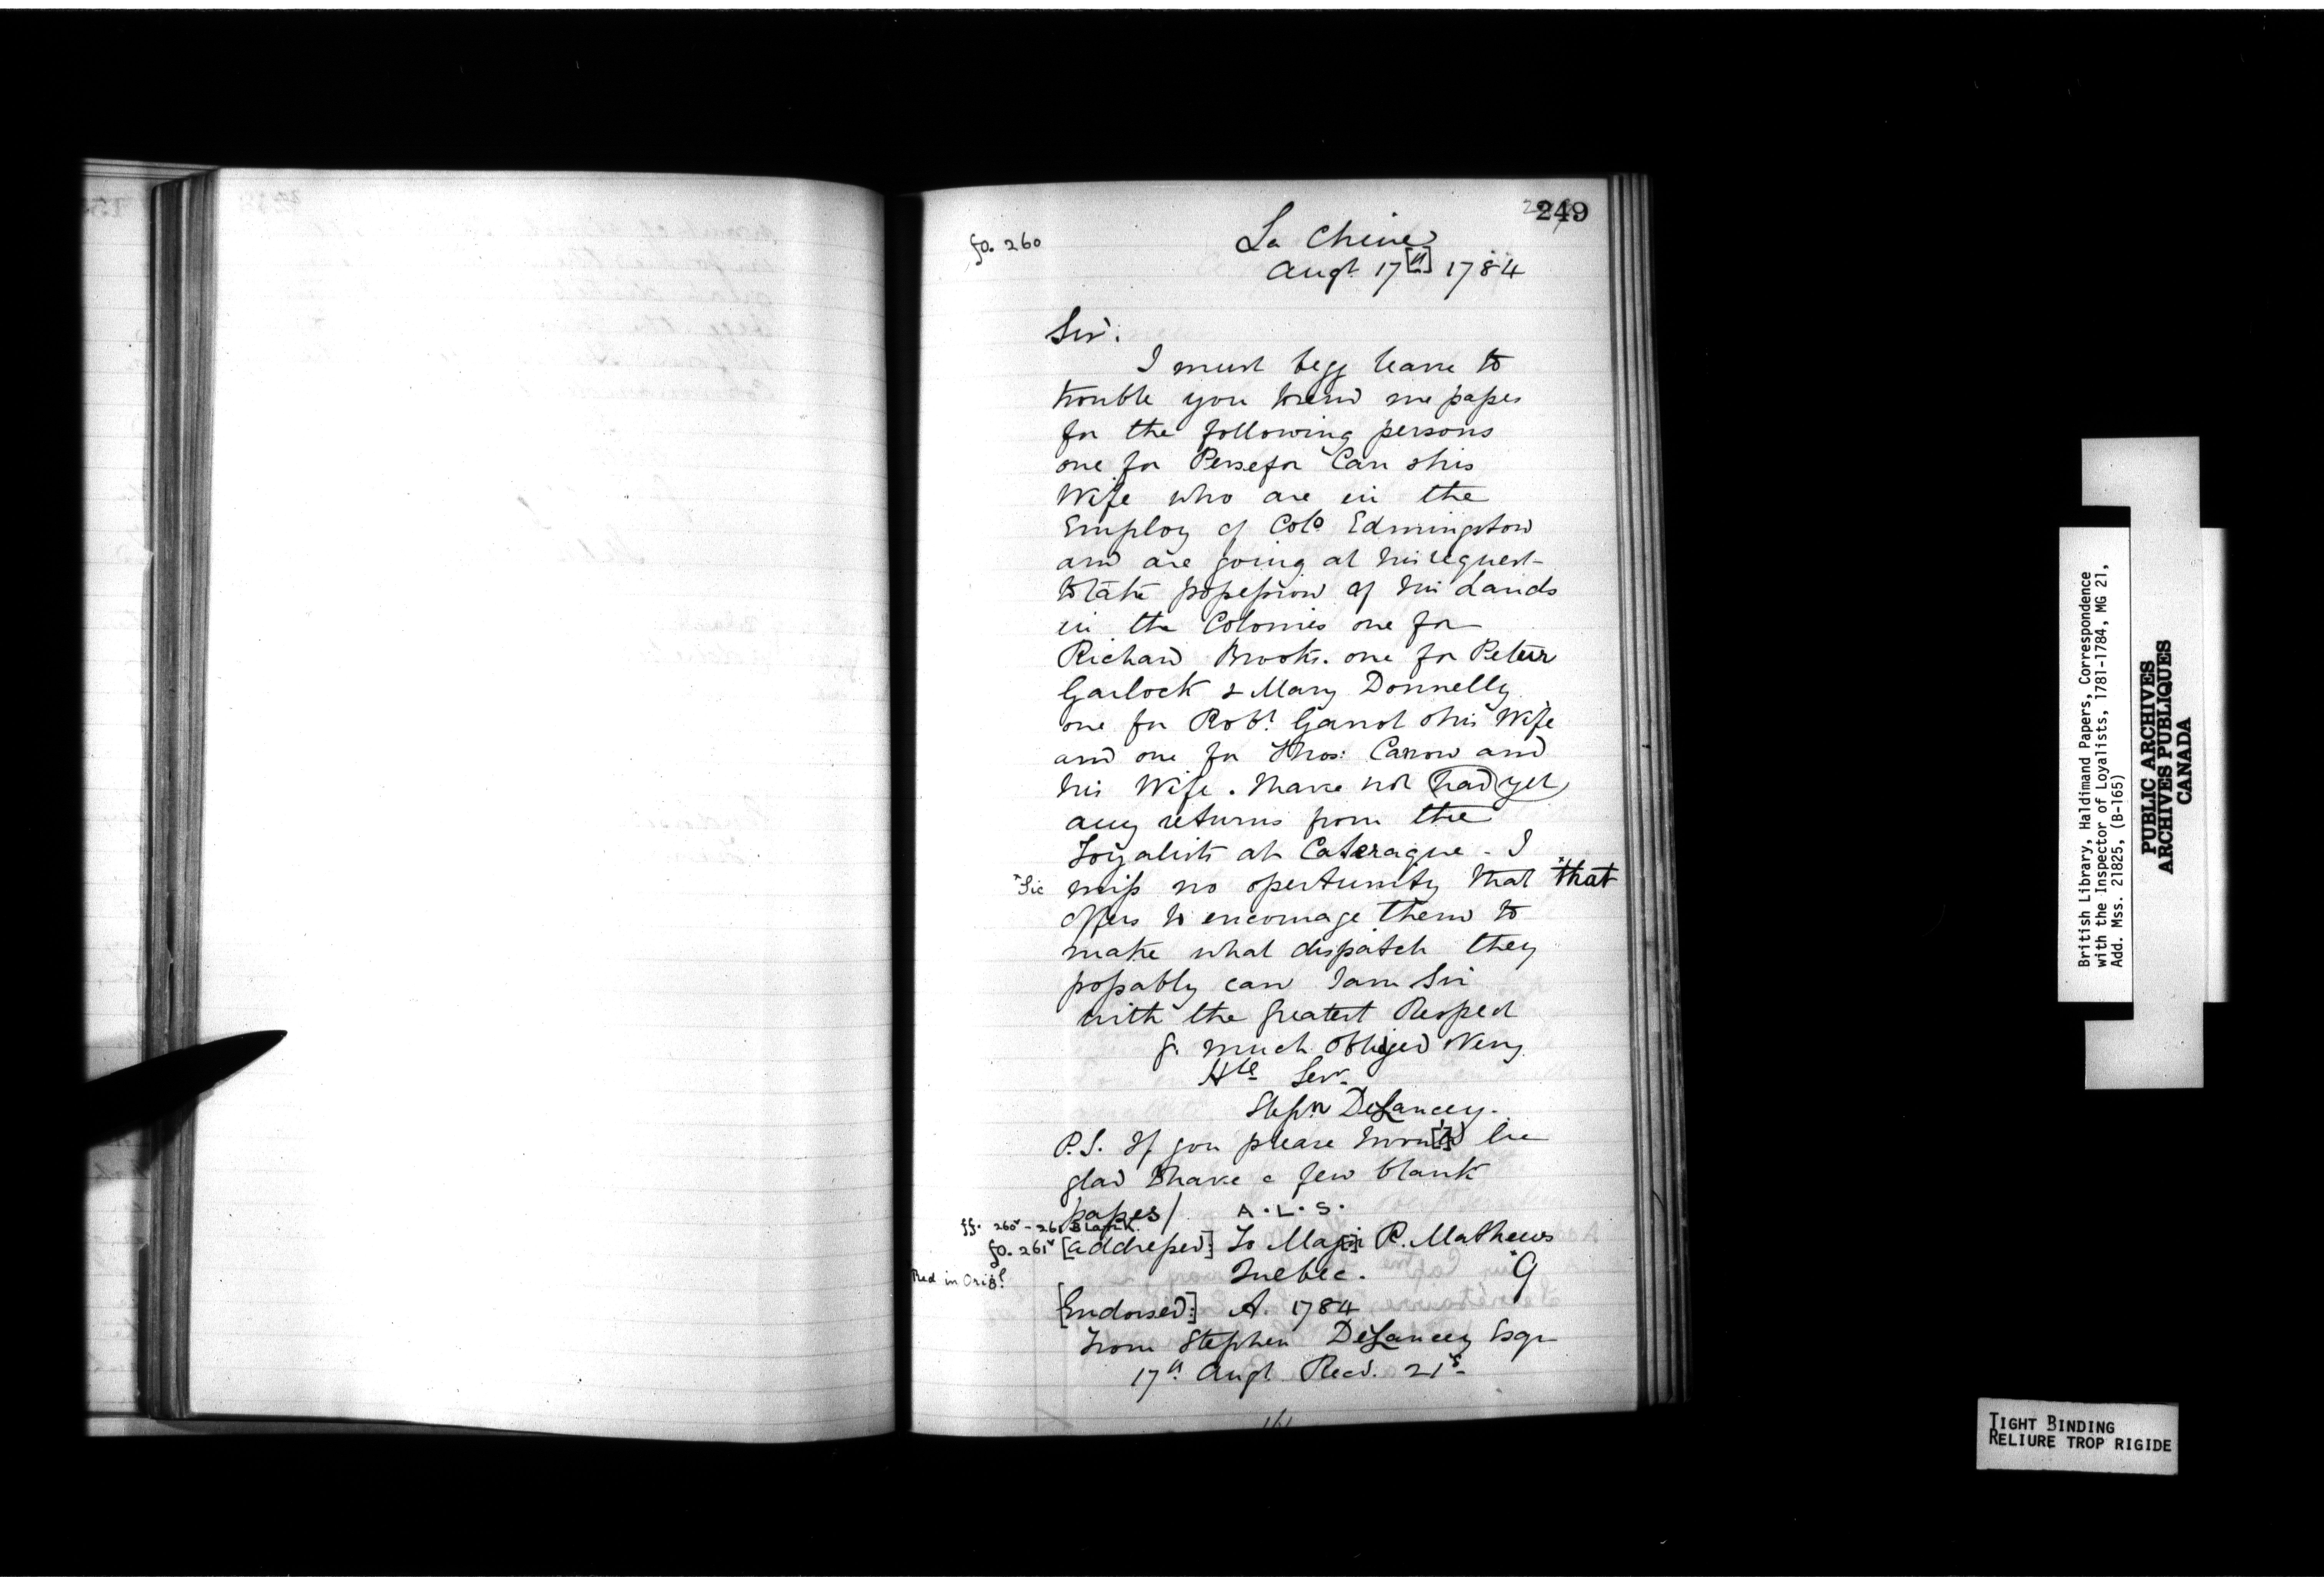 249
fo. 260
La Chine
Augt 17[th] 1784
Sir.
I must begg leave to
trouble you to send me passes
for the following persons
one for Persefor Carr & his
Wife who are in the
Employ of Colo Edmingston
and are going at his request
to take possession of his Lands
in the Colonies one for
Richard Brooks. one for Peter
Garlock & Mary Donnelly
one for Robt. Garrot & his Wife
and one for Thos: Carrow and
his Wife. I have not had yet
any returns from the
Loyalists at Cateraque - I
*Sic miss no opertunity that *that
offers to encourage them to
make what dispatch they
possably can I am Sir
with the greatest Respect
Yr much obliged & Very
Hle Ser.
Stepn DeLancey.
P.S. If you please I wou[l]d be
glad to have a few blank
passes/ A.L.S.
ff. 260v - 261 Blank.
fo. 261v [addressed:] To Major R. Mathews
Quebec. *9
Red in Orig?
[Endorsed:] A. 1784
From Stephen DeLancey Esqr
17th Augt. Recd. 21st
161
British Library, Haldimand Papers, Correspondence
with the Inspector of Loyalists, 1781-1784, MG 21,
Add. Mss. 21825, (B-165)
PUBLIC ARCHIVES
ARCHIVES PUBLIQUES
CANADA
TIGHT BINDING
RELIURE TROP RIGIDE